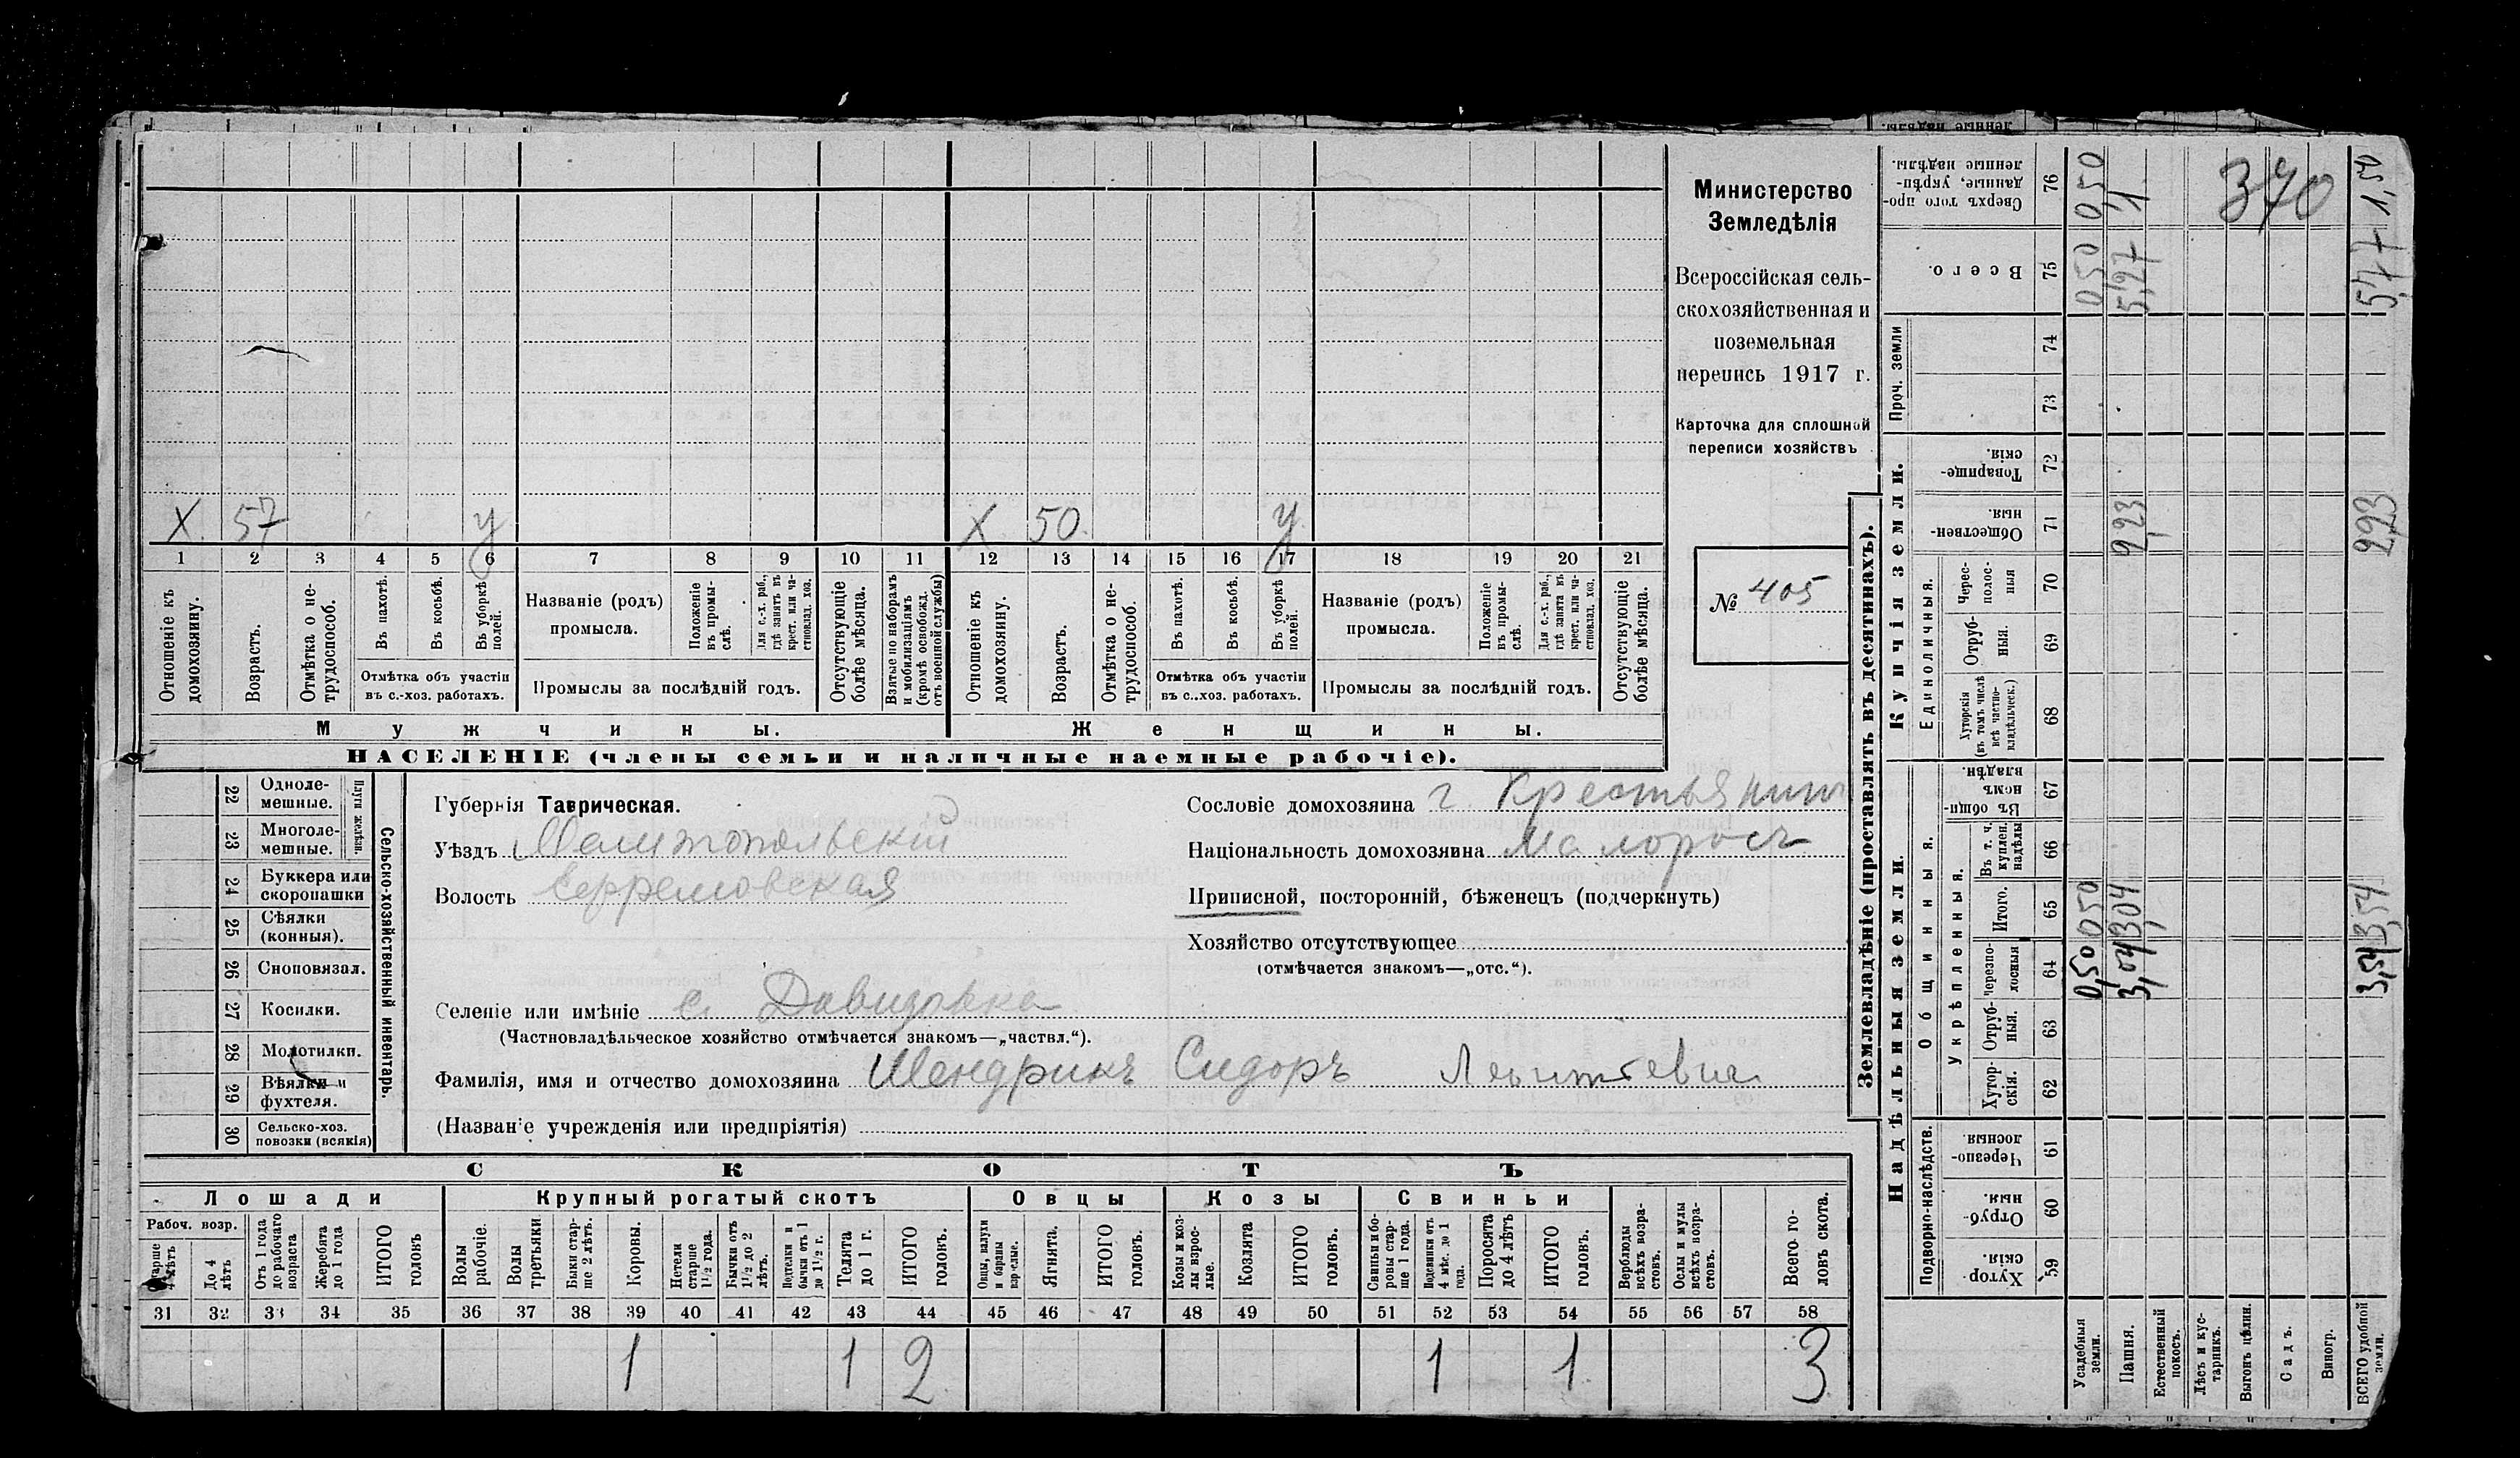 Министерство
Земледѣлія
Всероссійская сель-
скохозяйственная и
поземельная
перепись 1917 г.
Карточка для сплошной
переписи хозяйствъ
№ 405
Х 57 у Х 50. у
1 2 3 4 5 6 7 8 9 10 11 12 13 14 15 16 17 18 19 20 21
Отношеніе къ домохозяину.
Возрастъ.
Отмѣтка о не-трудоспособ.
Въ пахотѣ.
Въ косьбѣ.
Въ уборкѣ полей.
Отмѣтка объ участіи
въ с.-хоз. работахъ.
Названіе (родъ)
промысла.
Положеніе въ промы-слѣ.
Для с.-х. раб., гдѣ занятъ въ крест. или ча-стновлад. хоз.
Промыслы за послѣдній годъ.
Отсутствующіе болѣе мѣсяца.
Взятые по наборамъ и мобилизаціямъ (кромѣ освобожд. отъ военной службы)
Отношеніе къ домохозяину.
Возрастъ.
Отмѣтка о не-трудоспособ.
Въ пахотѣ.
Въ косьбѣ.
Въ уборкѣ полей.
Отмѣтка объ участіи
въ с.-хоз. работахъ.
Названіе (родъ)
промысла.
Положеніе въ промы-слѣ.
Для с.-х. раб., гдѣ занята въ крест. или ча-стновлад. хоз.
Промыслы за послѣдній годъ.
Отсутствующіе болѣе мѣсяца.
Мужчины. Женщины.
НАСЕЛЕНІЕ (члены семьи и наличные наемные рабочіе).
22 Одноле-мешные.
23 Многоле-мешные.
Плуги желѣзн.
24 Буккера или скоропашки
25 Сѣялки (конныя).
26 Сноповязал.
27 Косилки.
28 Молотилки.
29 Вѣялки и фухтеля.
30 Сельско-хоз. повозки (всякія)
Сельско-хозяйственный инвентарь.
Губернія Таврическая.
Уѣздъ Мелитопольскій
Волость Ефремовская
Селеніе или имѣніе с. Давидовка
(Частновладѣльческое хозяйство отмѣчается знакомъ—„частвл.“).
Фамилія, имя и отчество домохозяина Шендрикъ Сидоръ Леонтьевич
(Названіе учрежденія или предпріятія)
Сословіе домохозяина Крестьянин
Національность домохозяина Малоросъ
Приписной, посторонній, бѣженецъ (подчеркнуть)
Хозяйство отсутствующее
(отмѣчается знакомъ—„отс.“).
СКОТЪ
Лошади Крупный рогатый скотъ Овцы Козы Свиньи
Рабоч. возр.
Старше 4 лѣтъ
До 4 лѣтъ
Отъ 1 года до рабочаго возраста
Жеребята до 1 года
ИТОГО головъ
Волы рабочіе.
Волы третьяки
Быки стар-ше 2 лѣтъ.
Коровы.
Нетели старше 1½ года.
Бычки отъ 1½ до 2 лѣтъ.
Подтелки и бычки отъ 1 до 1½ г.
Телята до 1 г.
ИТОГО головъ.
Овцы, валухи и бараны взрослые.
Ягнята.
ИТОГО головъ.
Козы и коз-лы взрос-лые.
Козлята
ИТОГО головъ.
Свиньи и бо-ровы стар-ше 1 года.
Подсвинки отъ 4 мѣс. до 1 года.
Поросята до 4 лѣтъ
ИТОГО головъ.
Верблюды всѣхъ возра-стовъ.
Ослы и мулы всѣхъ возра-стовъ.
Всего го-ловъ скота.
31 32 33 34 35 36 37 38 39 40 41 42 43 44 45 46 47 48 49 50 51 52 53 54 55 56 57 58
1 1 2 1 1 3
Землевладѣніе (проставлять въ десятинахъ).
Надѣльныя земли. Купчія земли. Проч. земли
Подворно-наслѣдств.
Общинныя.
Укрѣпленныя.
Единоличныя.
Хутор-скія. 59
Отруб-ныя. 60
Черезпо-лосныя. 61
Хутор-скія. 62
Отруб-ныя. 63
Черезпо-лосныя 64
Итого. 65
Въ т. ч. куплен. надѣлы 66
Въ общин-номъ владѣн. 67
Хуторскія (въ томъ числѣ всѣ частно-владѣльческ.) 68
Отруб-ныя. 69
Черес-полос-ныя 70
Обществен-ныя. 71
Товарище-скія. 72
73
74
Всего. 75
Сверхъ того про-данные, укрѣп-ленные надѣлы. 76
Усадебныя земли. 0,50 0,50 0,50 0,50
Пашня. 3,04 3,04 2,23 5,27 1
Естественный покосъ.
Лѣсъ и кус-тарникъ.
Выгонъ цѣлин.
Садъ.
Виногр.
ВСЕГО удобной земли. 3,54 3,54 2,23 5,77 1,50
370
ленные надѣлы.